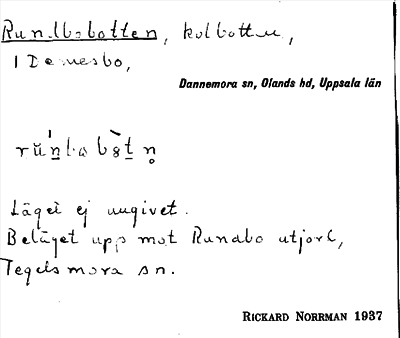 Rundbobotten, kolbotten,
i Dannesbo,
Dannemora sn, Olands hd, Uppsala län
Läget ej angivet.
Beläget upp mot Rundbo utjord,
Tegelsmora sn.
RICKARD NORRMAN 1937